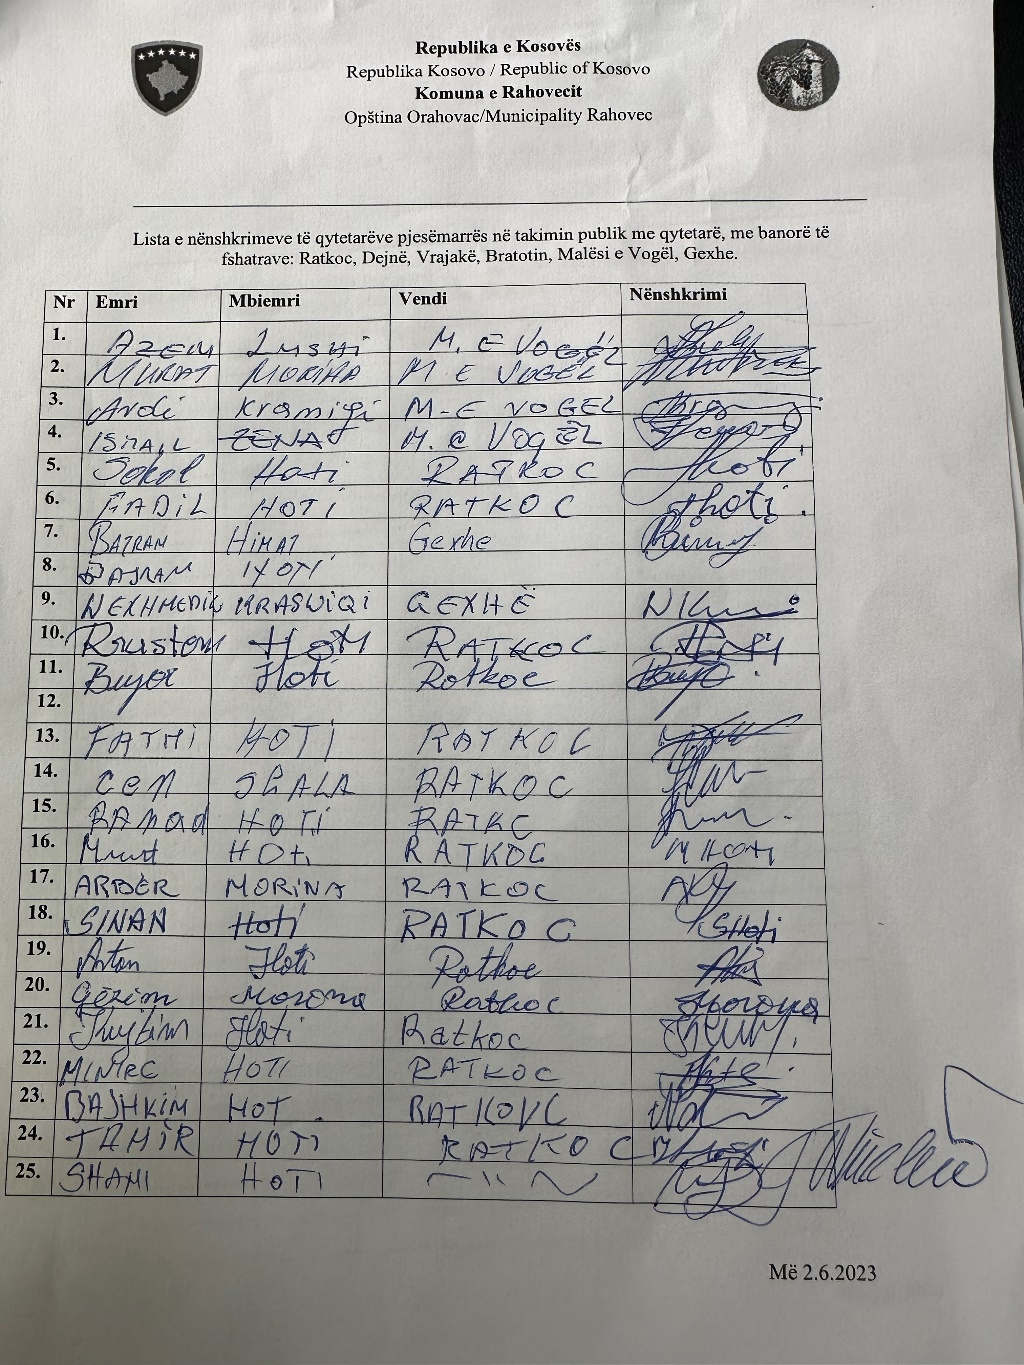 Republika e Kosovës
Republika Kosovo / Republic of Kosovo
Komuna e Rahovecit
Opština Orahovac/Municipality Rahovec
Lista e nënshkrimeve të qytetarëve pjesëmarrës në takimin publik me qytetarë, me banorë të
fshatrave: Ratkoc, Dejnë, Vrajakë, Bratotin, Malësi e Vogël, Gexhe.
Nr Emri Mbiemri Vendi Nënshkrimi
1. AZEM M. E VOGËL
2. MURAT MORINA M E VOGËL
3. Avdi Kramiqi M-E VOGEL
4. ISMAIL ZENAJ M. e VOGËL
5. Sokol Hoti RATKOC Hoti
6. FADIL HOTI RATKOC Hoti.
7. BAJRAM Gexhe
8. BAJRAM HOTI
9. NEXHMEDIN KRASNIQI GEXHË
10. Rrustem Hoti RATKOC
11. Bujar Hoti Ratkoc
12.
13. FATMI HOTI RATKOC
14. CEN SPALA RATKOC
15. HOTI RATKC
16. Murat HOTI RATKOC M HOTI
17. ARBËR MORINA RATKOC
18. SINAN Hoti RATKOC SHoti
19. Arton Hoti Ratkoc
20. Gëzim Morona Ratkoc Morona
21. Hoti Ratkoc
22. HOTI RATKOC
23. BASHKIM HOT. RATKOVC
24. TAHIR HOTI RATKOC
25. SHANI HOTI — " —
Më 2.6.2023